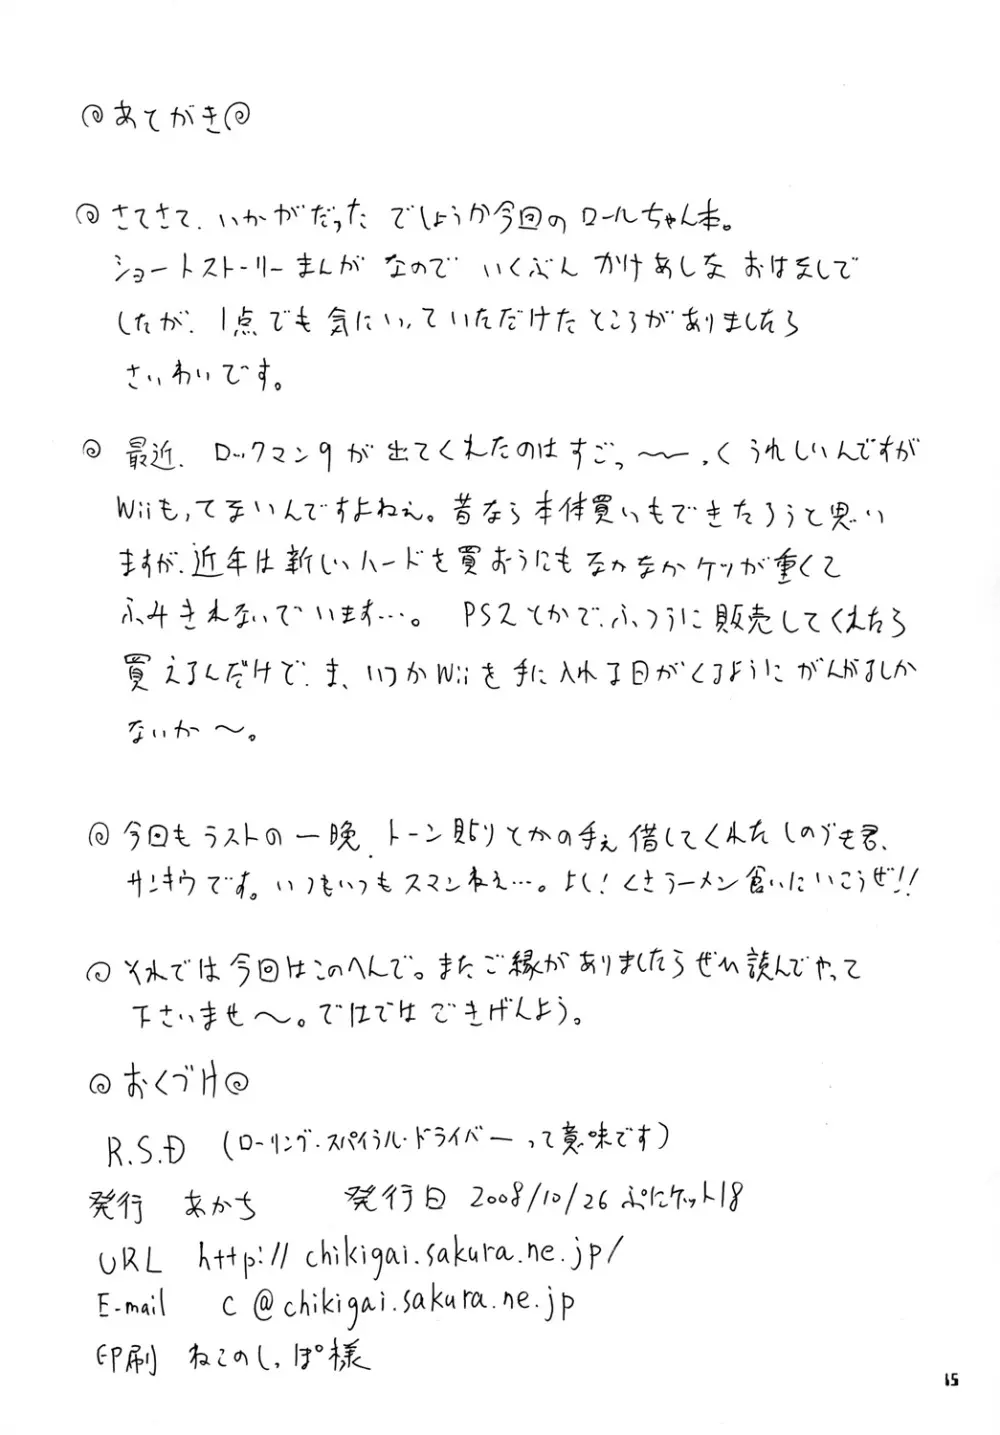 @あとがき@
@さてさて、いかがだったでしょうか今回のロールちゃん本。
ショートストーリーまんがなのでいくぶんかけあしなおはなしで
したが、1点でも気にいっていただけたところがありましたら
さいわいです。
@最近、ロックマン9が出てくれたのはすごっ〜〜っくうれしいんですが
Wiiもってないんですよねぇ。昔なら本体買いもできたろうと思い
ますが、近年は新しいハードを買おうにもなかなかケツが重くて
ふみきれないでいます…。PS2とかで、ふつうに販売してくれたら
買えるんだけど、ま、いつかWiiを手に入れる日がくるようにがんばるしか
ないか〜。
@今回もラストの一晩、トーン貼りとかの手を借してくれたしのづき君、
サンキウです。いつもいつもスマンねぇ…。よし!くさラーメン食いにいこうぜ!!
@それでは今回はこのへんで。またご縁がありましたらぜひ読んでやって
下さいませ〜。ではではごきげんよう。
@おくづけ@
R.S.D (ローリング・スパイラル・ドライバーって意味です)
発行 あかち 発行日 2008/10/26 ぷにケット18
URL http://chikigai.sakura.ne.jp/
E-mail c@chikigai.sakura.ne.jp
印刷 ねこのしっぽ様
15